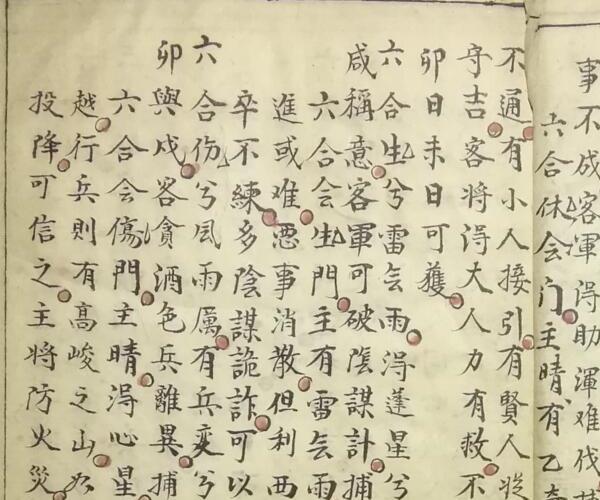 事不成客軍得助渾难伐
六合休会门主晴有乙奇
不通有小人接引有賢人
守吉客将得大人力有救不
卯日未日可獲
六合生兮雷雲雨得蓬星兮
咸稱意客軍可破陰謀計捕
六合会生門主有雷雲雨
進或难惡事消散但利西
卒不練多陰謀詭詐可以
六合伤兮風雨厲有兵变兮
卯與戌客貪酒色兵離異捕
六合会傷門主晴得心星
越行兵則有高峻之山
投降可信之主将防火災